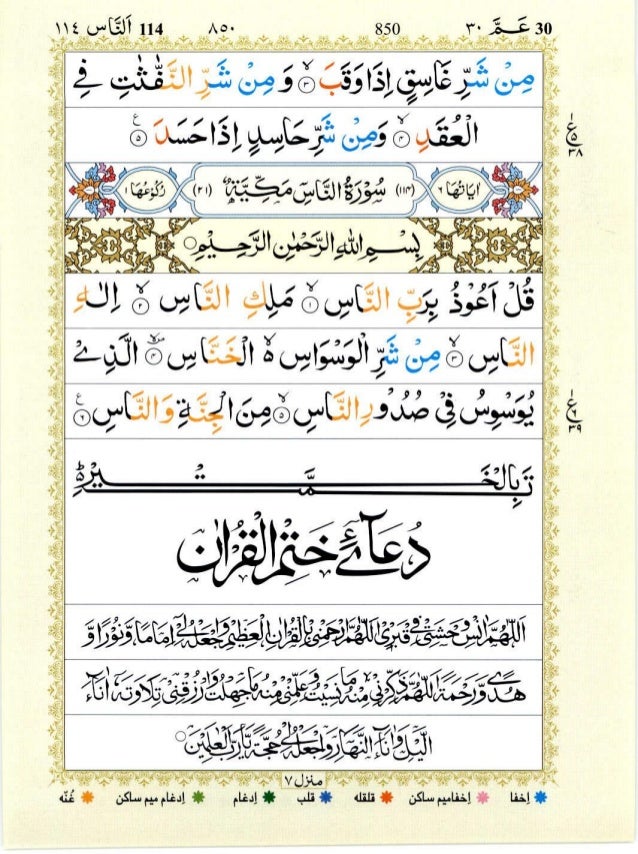 30 عَمَّ ٣٠ 850 ٨٥٠ 114 اَلنَّاس ١١٤
مِنْ شَرِّ غَاسِقٍ اِذَا وَقَبَ ۙ‏﴿۳﴾ وَ مِنْ شَرِّ النَّفّٰثٰتِ فِے
الْعُقَدِ ۙ‏﴿۴﴾ وَمِنْ شَرِّ حَاسِدٍ اِذَا حَسَدَ ‏﴿۵﴾
ع ٥ ٣٨
اٰیَاتُهَا ٦ (١١٤) سُوْرَةُ النَّاسِ مَكِّیَّةٌ (٢١) رُكُوْعُهَا ١
بِسْمِ اللهِ الرَّحْمٰنِ الرَّحِيْمِ
قُلْ اَعُوْذُ بِرَبِّ النَّاسِ ۙ‏﴿۱﴾ مَلِكِ النَّاسِ ۙ‏﴿۲﴾ اِلٰهِ
النَّاسِ ۙ‏﴿۳﴾ مِنْ شَرِّ الْوَسْوَاسِ ۵ۙ الْخَنَّاسِ ‏﴿۴﴾ الَّذِیْ
يُوَسْوِسُ فِیْ صُدُوْرِ النَّاسِ ۙ‏﴿۵﴾ مِنَ الْجِنَّةِ وَالنَّاسِ ‏﴿۶﴾
ع ٦ ٣٩
تَمَّتْ بِالْخَیْرِ
دُعَآئے خَتْمِ الْقُرْاٰن
اَللّٰهُمَّ اٰنِسْ وَحْشَتِیْ فِیْ قَبْرِیْ اَللّٰهُمَّ ارْحَمْنِیْ بِالْقُرْاٰنِ الْعَظِیْمِ وَاجْعَلْهُ لِیْ اِمَامًا وَّنُوْرًا وَّ
هُدًی وَّرَحْمَةً اَللّٰهُمَّ ذَكِّرْنِیْ مِنْهُ مَا نَسِیْتُ وَعَلِّمْنِیْ مِنْهُ مَا جَهِلْتُ وَارْزُقْنِیْ تِلَاوَتَهٗ اٰنَآءَ
الَّیْلِ وَاٰنَآءَ النَّهَارِ وَاجْعَلْهُ لِیْ حُجَّةً یَّا رَبَّ الْعٰلَمِیْنَ
منزل ٧
اِخفا اِخفامیم ساکن قلقله قلب اِدغام اِدغام میم ساکن غُنّه